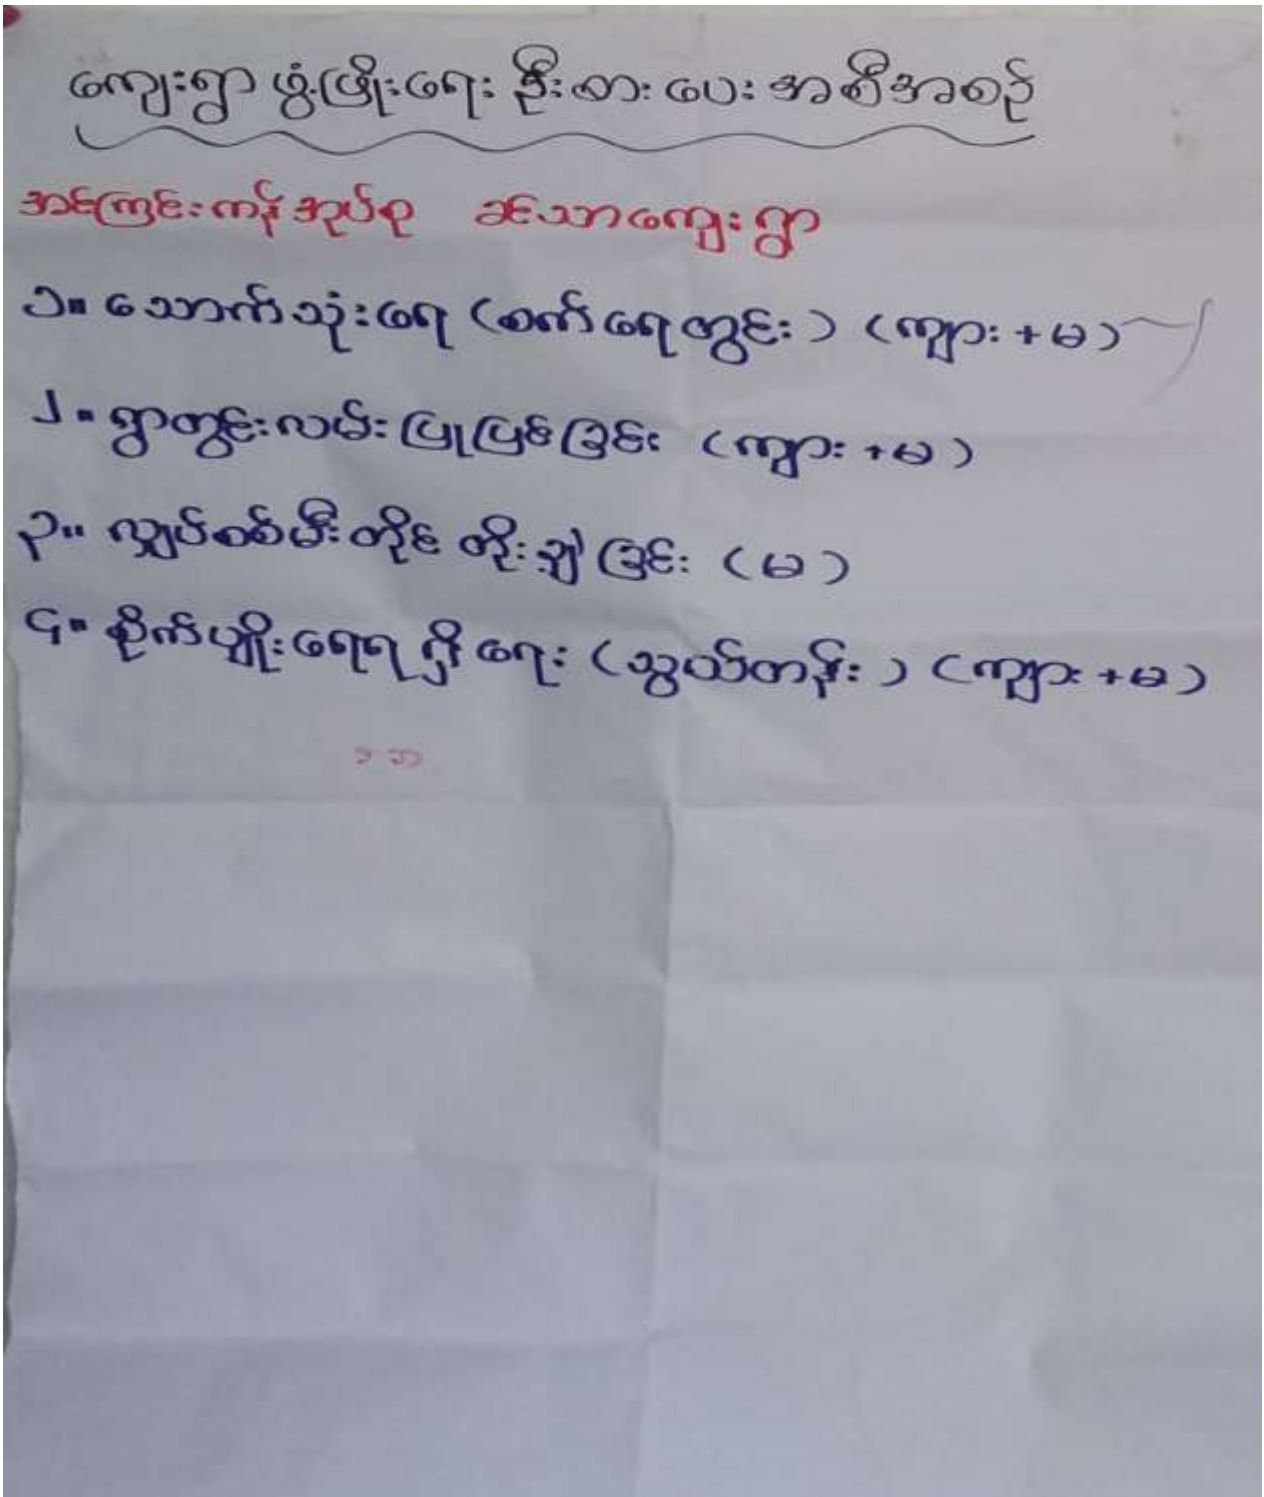 ကျေးရွာ ဖွံ့ဖြိုးရေး ဦးစားပေး အစီအစဉ်
အင်ကြင်းကန် အုပ်စု ခင်သာကျေးရွာ
၁။ သောက်သုံးရေ (စက်ရေတွင်း) (ကျား + မ)
၂။ ရွာတွင်းလမ်းပြုပြင်ခြင်း (ကျား + မ)
၃။ လျှပ်စစ်မီးတိုင် တိုးချဲ့ခြင်း (မ)
၄။ စိုက်ပျိုးရေရရှိရေး (သွယ်တန်း) (ကျား + မ)